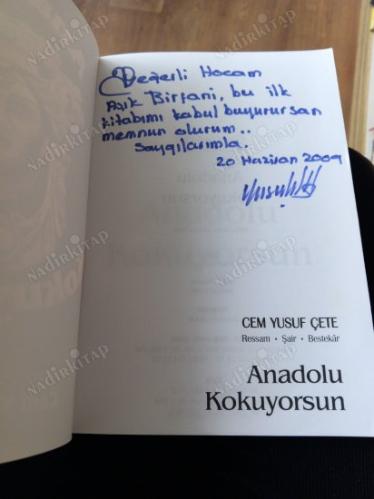 Değerli Hocam
Aşık Birfani, bu ilk
kitabımı kabul buyurursan
memnun olurum..
Saygılarımla.
20 Haziran 2009
CEM YUSUF ÇETE
Ressam • Şair • Bestekâr
Anadolu
Kokuyorsun
NADİRKİTAP